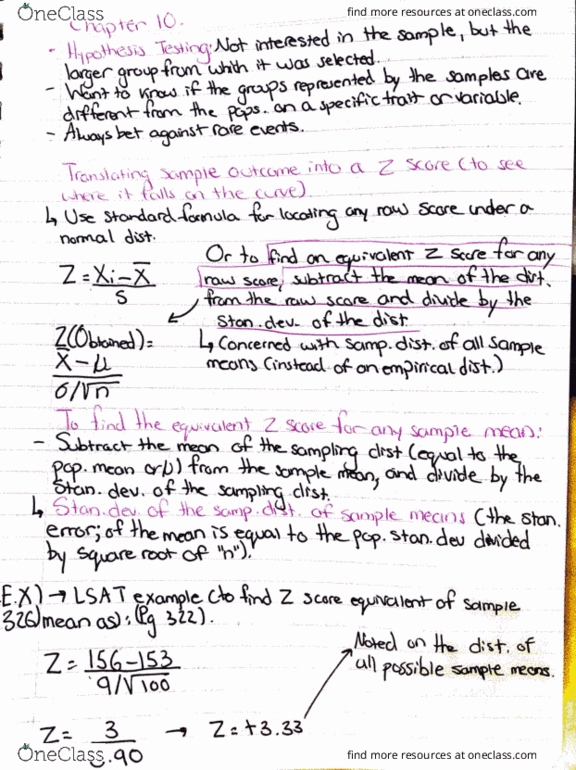 OneClass
find more resources at oneclass.com
Chapter 10.
- Hypothesis Testing: Not interested in the sample, but the
larger group from which it was selected.
- Want to know if the groups represented by the samples are
different from the pops. on a specific trait or variable.
- Always bet against rare events.
Translating sample outcome into a Z score (to see
where it falls on the curve).
↳ Use standard formula for locating any raw score under a
normal dist.
Z = Xi - X̄
S
Or to find an equivalent Z score for any
raw score, subtract the mean of the dist.
from the raw score and divide by the
Stan. dev. of the dist
↳ Concerned with samp. dist. of all sample
means (instead of an empirical dist.)
Z(Obtained) =
X - μ
σ/√n
To find the equivalent Z score for any sample mean:
- Subtract the mean of the sampling dist (equal to the
pop. mean or μ) from the sample mean, and divide by the
Stan. dev. of the sampling dist.
↳ Stan. dev. of the samp. dist. of sample means (the stan.
error; of the mean is equal to the pop. stan. dev divided
by square root of "n").
E.X) → LSAT example (to find Z score equivalent of sample
326) mean as): (Pg 322).
Z = 156-153
9/√100
Noted on the dist. of
all possible sample means.
Z = 3
.90
→ Z = +3.33
OneClass
find more resources at oneclass.com